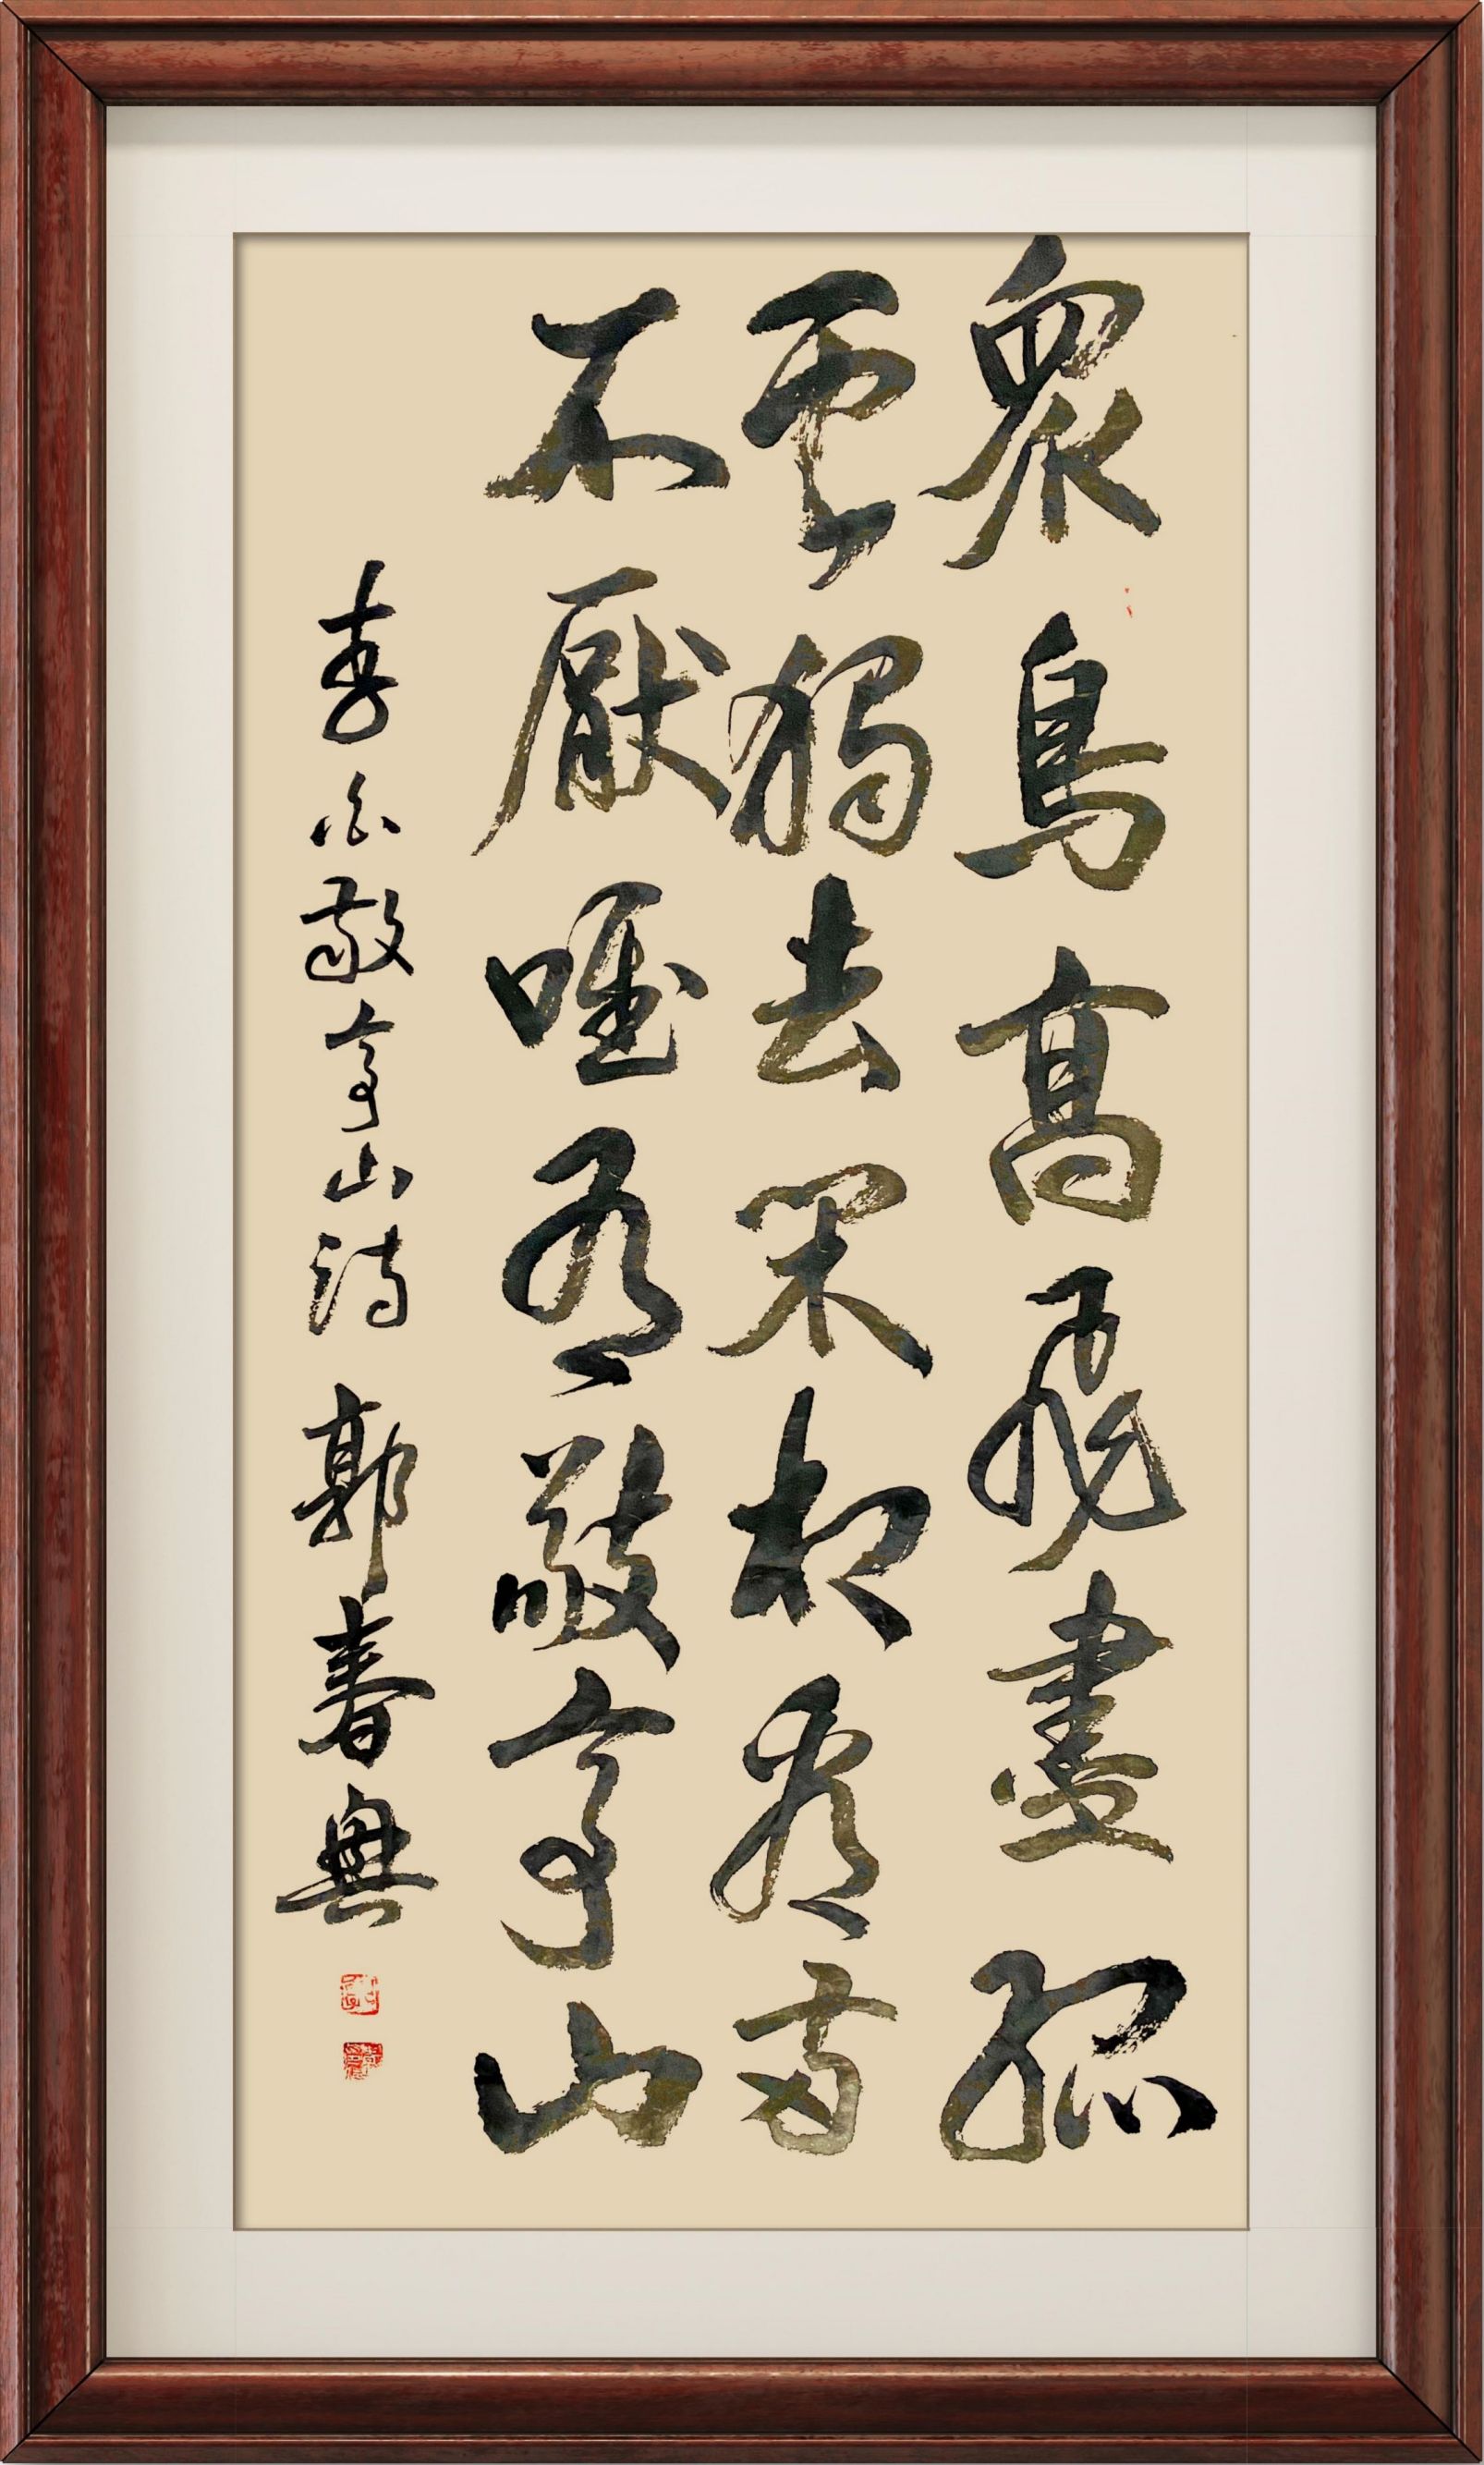 衆鳥高飛盡孤
雲獨去閑相看兩
不厭唯有敬亭山
李白敬亭山詩 郭春